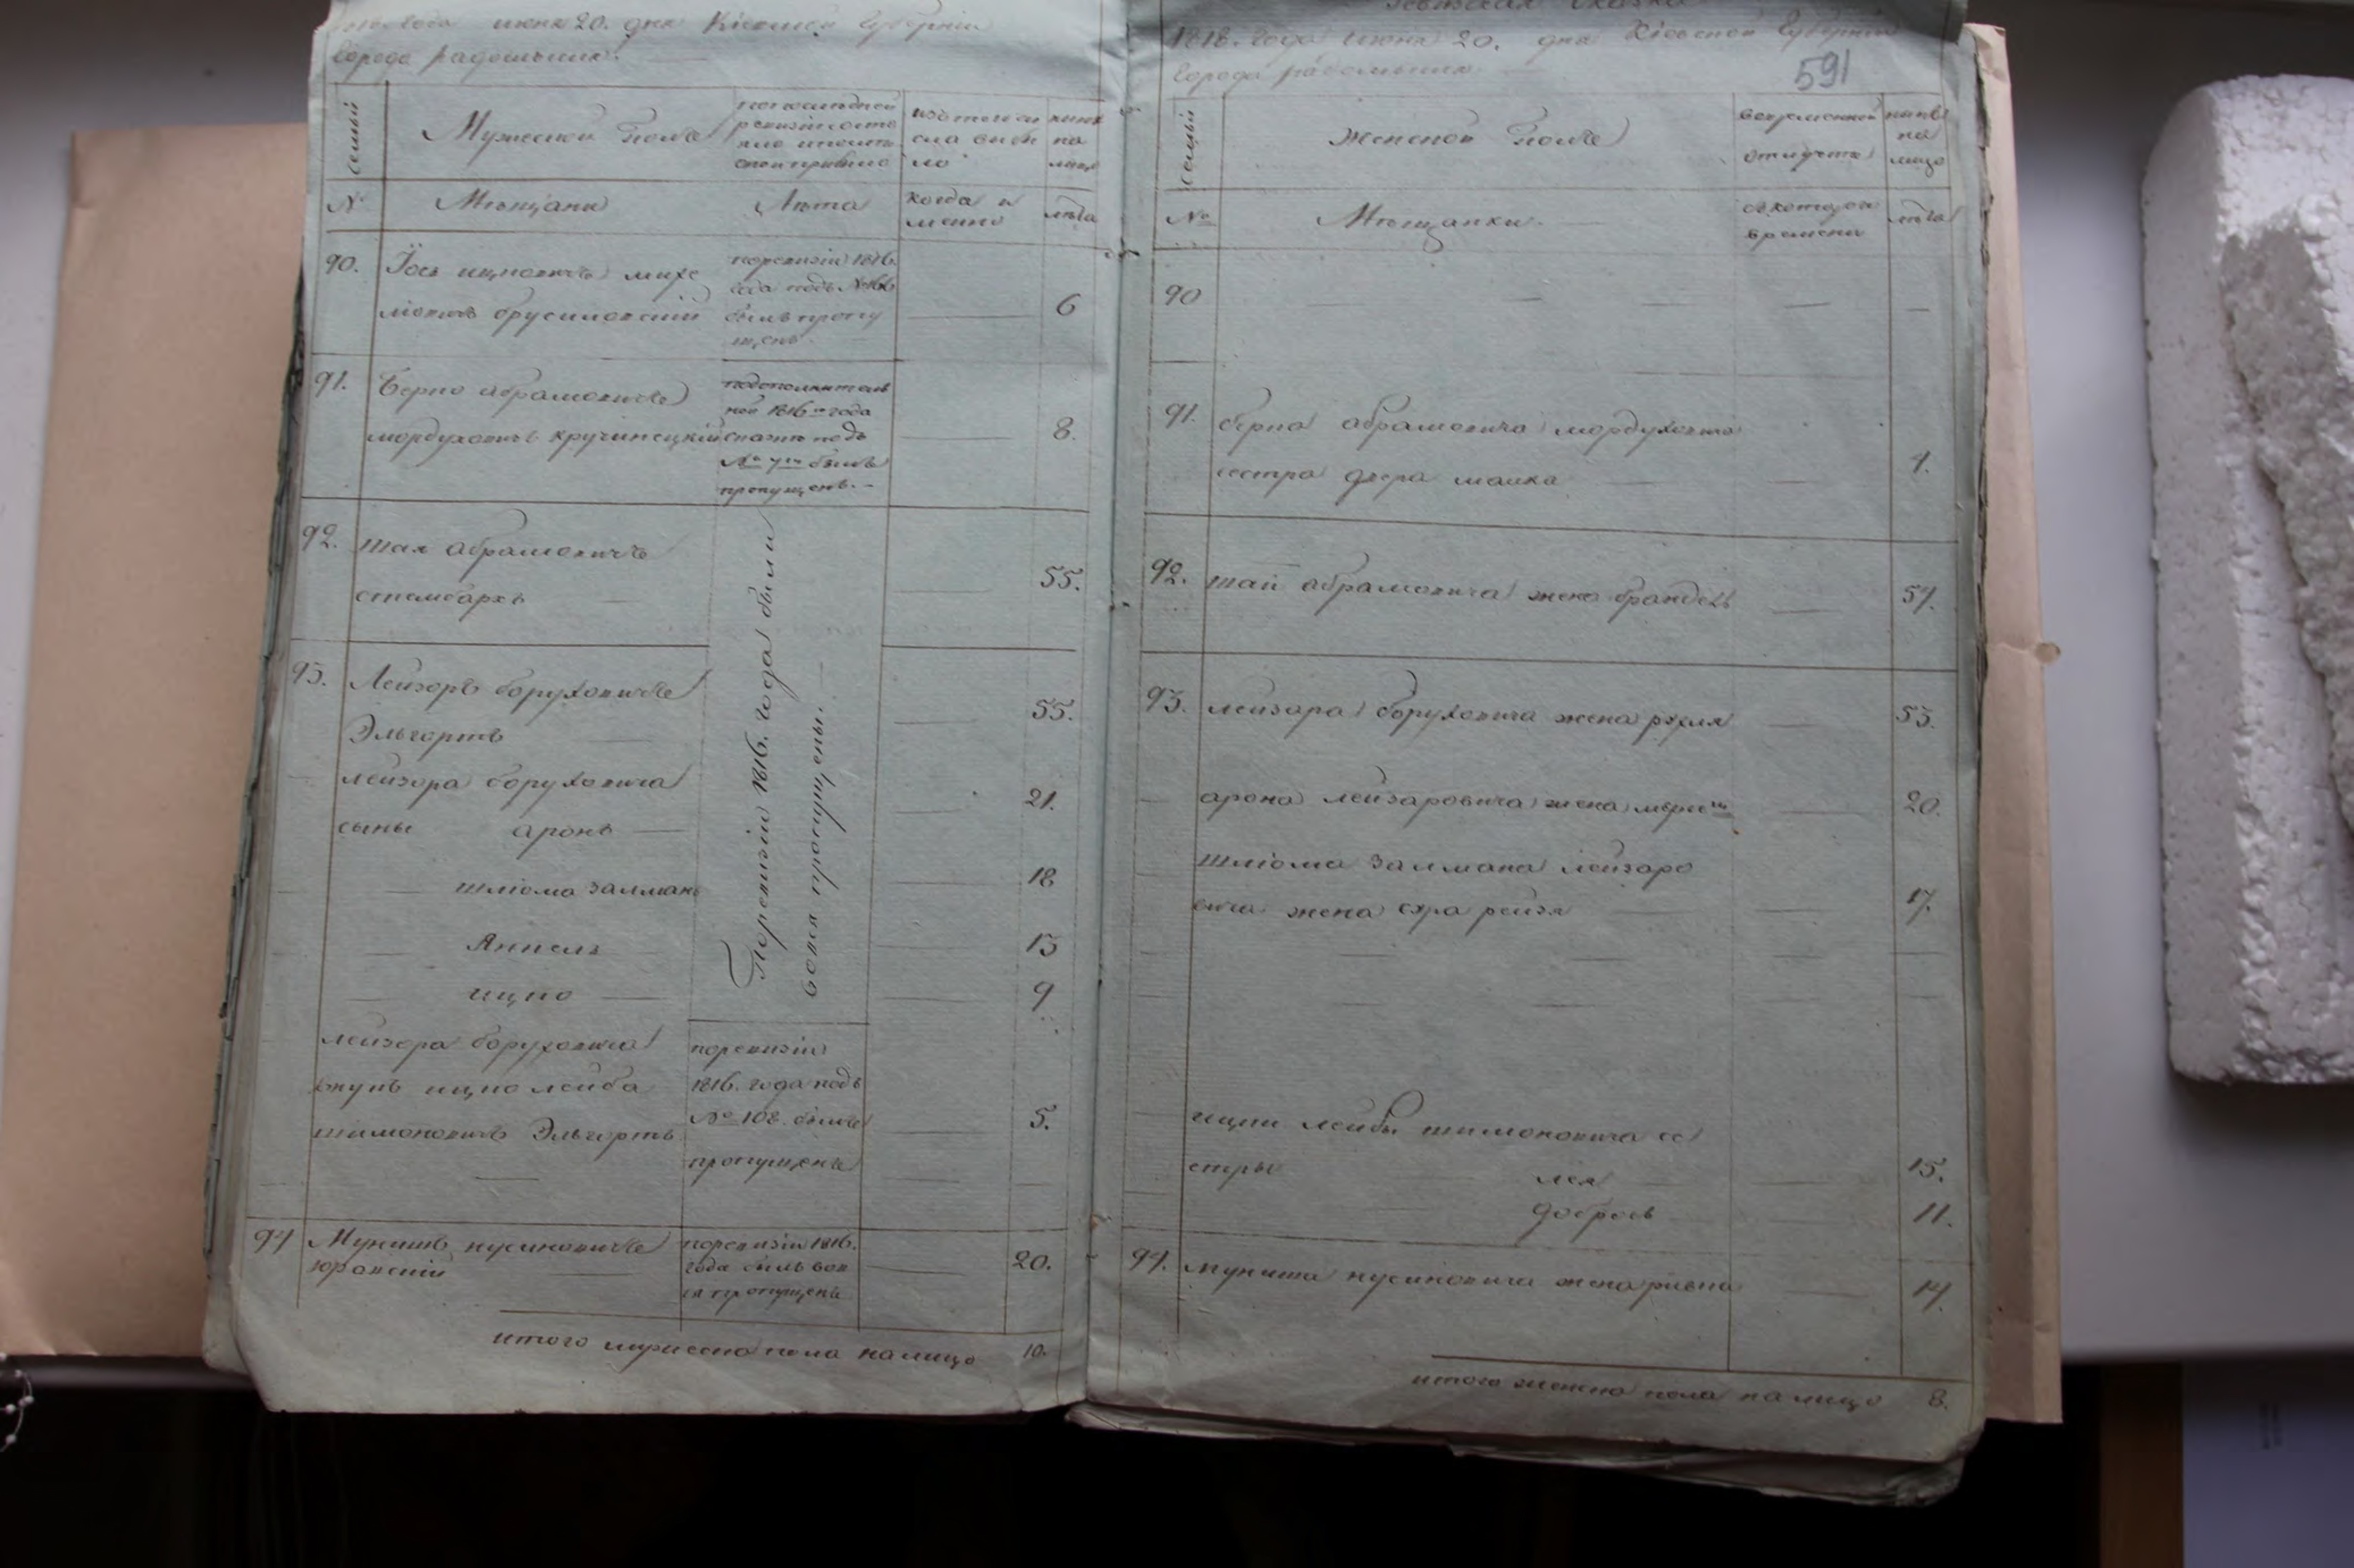 года июня 20. дня Кіевской Губерніи
Города радомысля.
семьи
Мужеской Полъ
по последней
ревизіи состо
яло и после
оной прибыло
изъ того чи
сла выбы
ло
ныне
на
лицо
№
Мѣщане
Лѣта
когда и
менно
лѣта
90.
Іось ицковичъ
брусиловскій
поревизіи 1816.
года подъ №166
былъ пропу
щенъ.
6
91.
Берко абрамовичъ
мордуховичъ кручинецкій
по дополнитель
ной 1816го года
сказке подъ
№ 7м былъ
пропущенъ.
8.
92.
шая абрамовичъ
стамбархъ
Поревизіи 1816. года были
вовся пропущены.
55.
93.
Лейзоръ боруховичъ
Эльгортъ
55.
лейзора боруховича
сыны аронъ
21.
шліома залманъ
18
Янкель
13
ицко
9
лейзора боруховича
внукъ ицко лейба
шимоновичъ Эльгортъ
поревизіи
1816. года подъ
№ 108. былъ
пропущенъ
5.
94
Мунишъ нусиновичъ
поревизіи 1816.
года былъ вов
ся пропущенъ
20.
итого мужеска пола на лицо 10.
ревизская сказка
1818. года июня 20. дня Кіевской Губерніи
Города радомысля.
591
семьи
Женской Полъ
во временной
отлучке
ныне
на
лицо
№
Мѣщанки.
съ котораго
времени
лѣта
90
91.
берка абрамовича мордуховича
сестра двера малка
4.
92.
шаи абрамовича жена брандель
57.
93.
лейзора боруховича жена рухля
53.
арона лейзаровича жена
20.
шліома залмана лейзаро
вича жена сура рейзя
17.
ицки лейбы шимоновича се
стры лея
15.
добрысь
11.
94.
муниша нусиновича жена ривка
17.
итого женска пола на лицо 8.